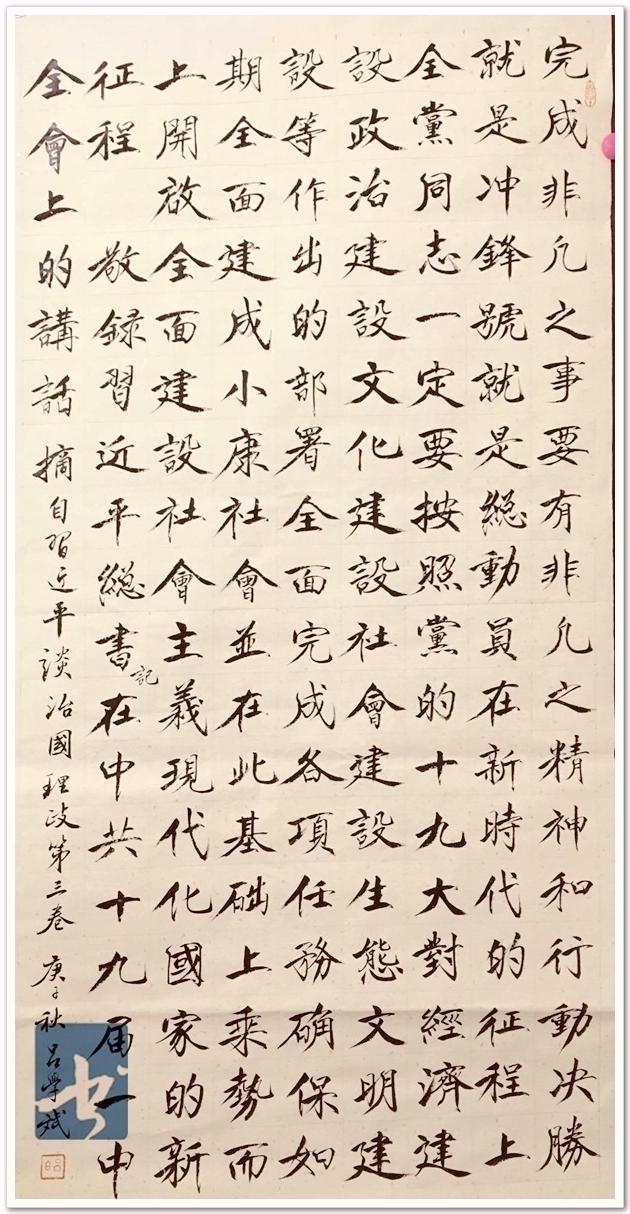 完成非凡之事要有非凡之精神和行動决勝
就是冲鋒號就是緫動員在新時代的征程上
全黨同志一定要按照黨的十九大對經濟建
設政治建設文化建設社會建設生態文明建
設等作出的部署全面完成各項任務确保如
期全面建成小康社會並在此基础上乘勢而
上開啟全面建設社會主義現代化國家的新
征程 敬録習近平緫書記在中共十九届一中
全會上的講話 摘自習近平談治國理政第三卷 庚子秋 吕學斌